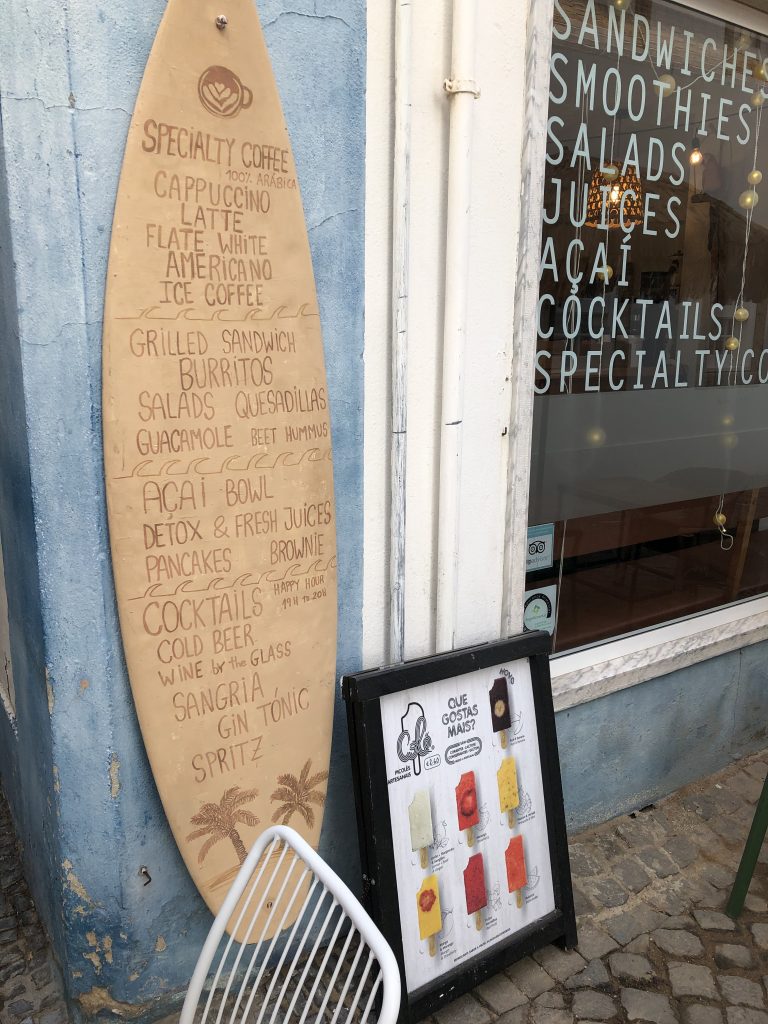 SPECIALTY COFFEE
100% ARÁBICA
CAPPUCCINO
LATTE
FLATE WHITE
AMERICANO
ICE COFFEE
GRILLED SANDWICH
BURRITOS
SALADS QUESADILLAS
GUACAMOLE BEET HUMMUS
AÇAI BOWL
DETOX & FRESH JUICES
PANCAKES BROWNIE
COCKTAILS HAPPY HOUR
19H TO 20H
COLD BEER
WINE by the GLASS
SANGRIA
GIN TÓNIC
SPRITZ
SANDWICHES
SMOOTHIES
SALADS
JUICES
AÇAÍ
COCKTAILS
SPECIALTY CO
QUE
GOSTAS
MAIS?
PICOLÉS
ARTESANAIS
NOVO